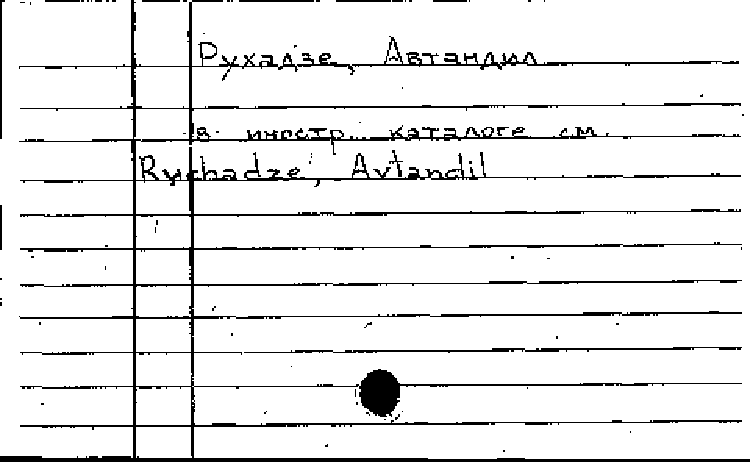 Рухадзе, Автандил
в иностр. каталоге см.
Ruchadze, Avtandil